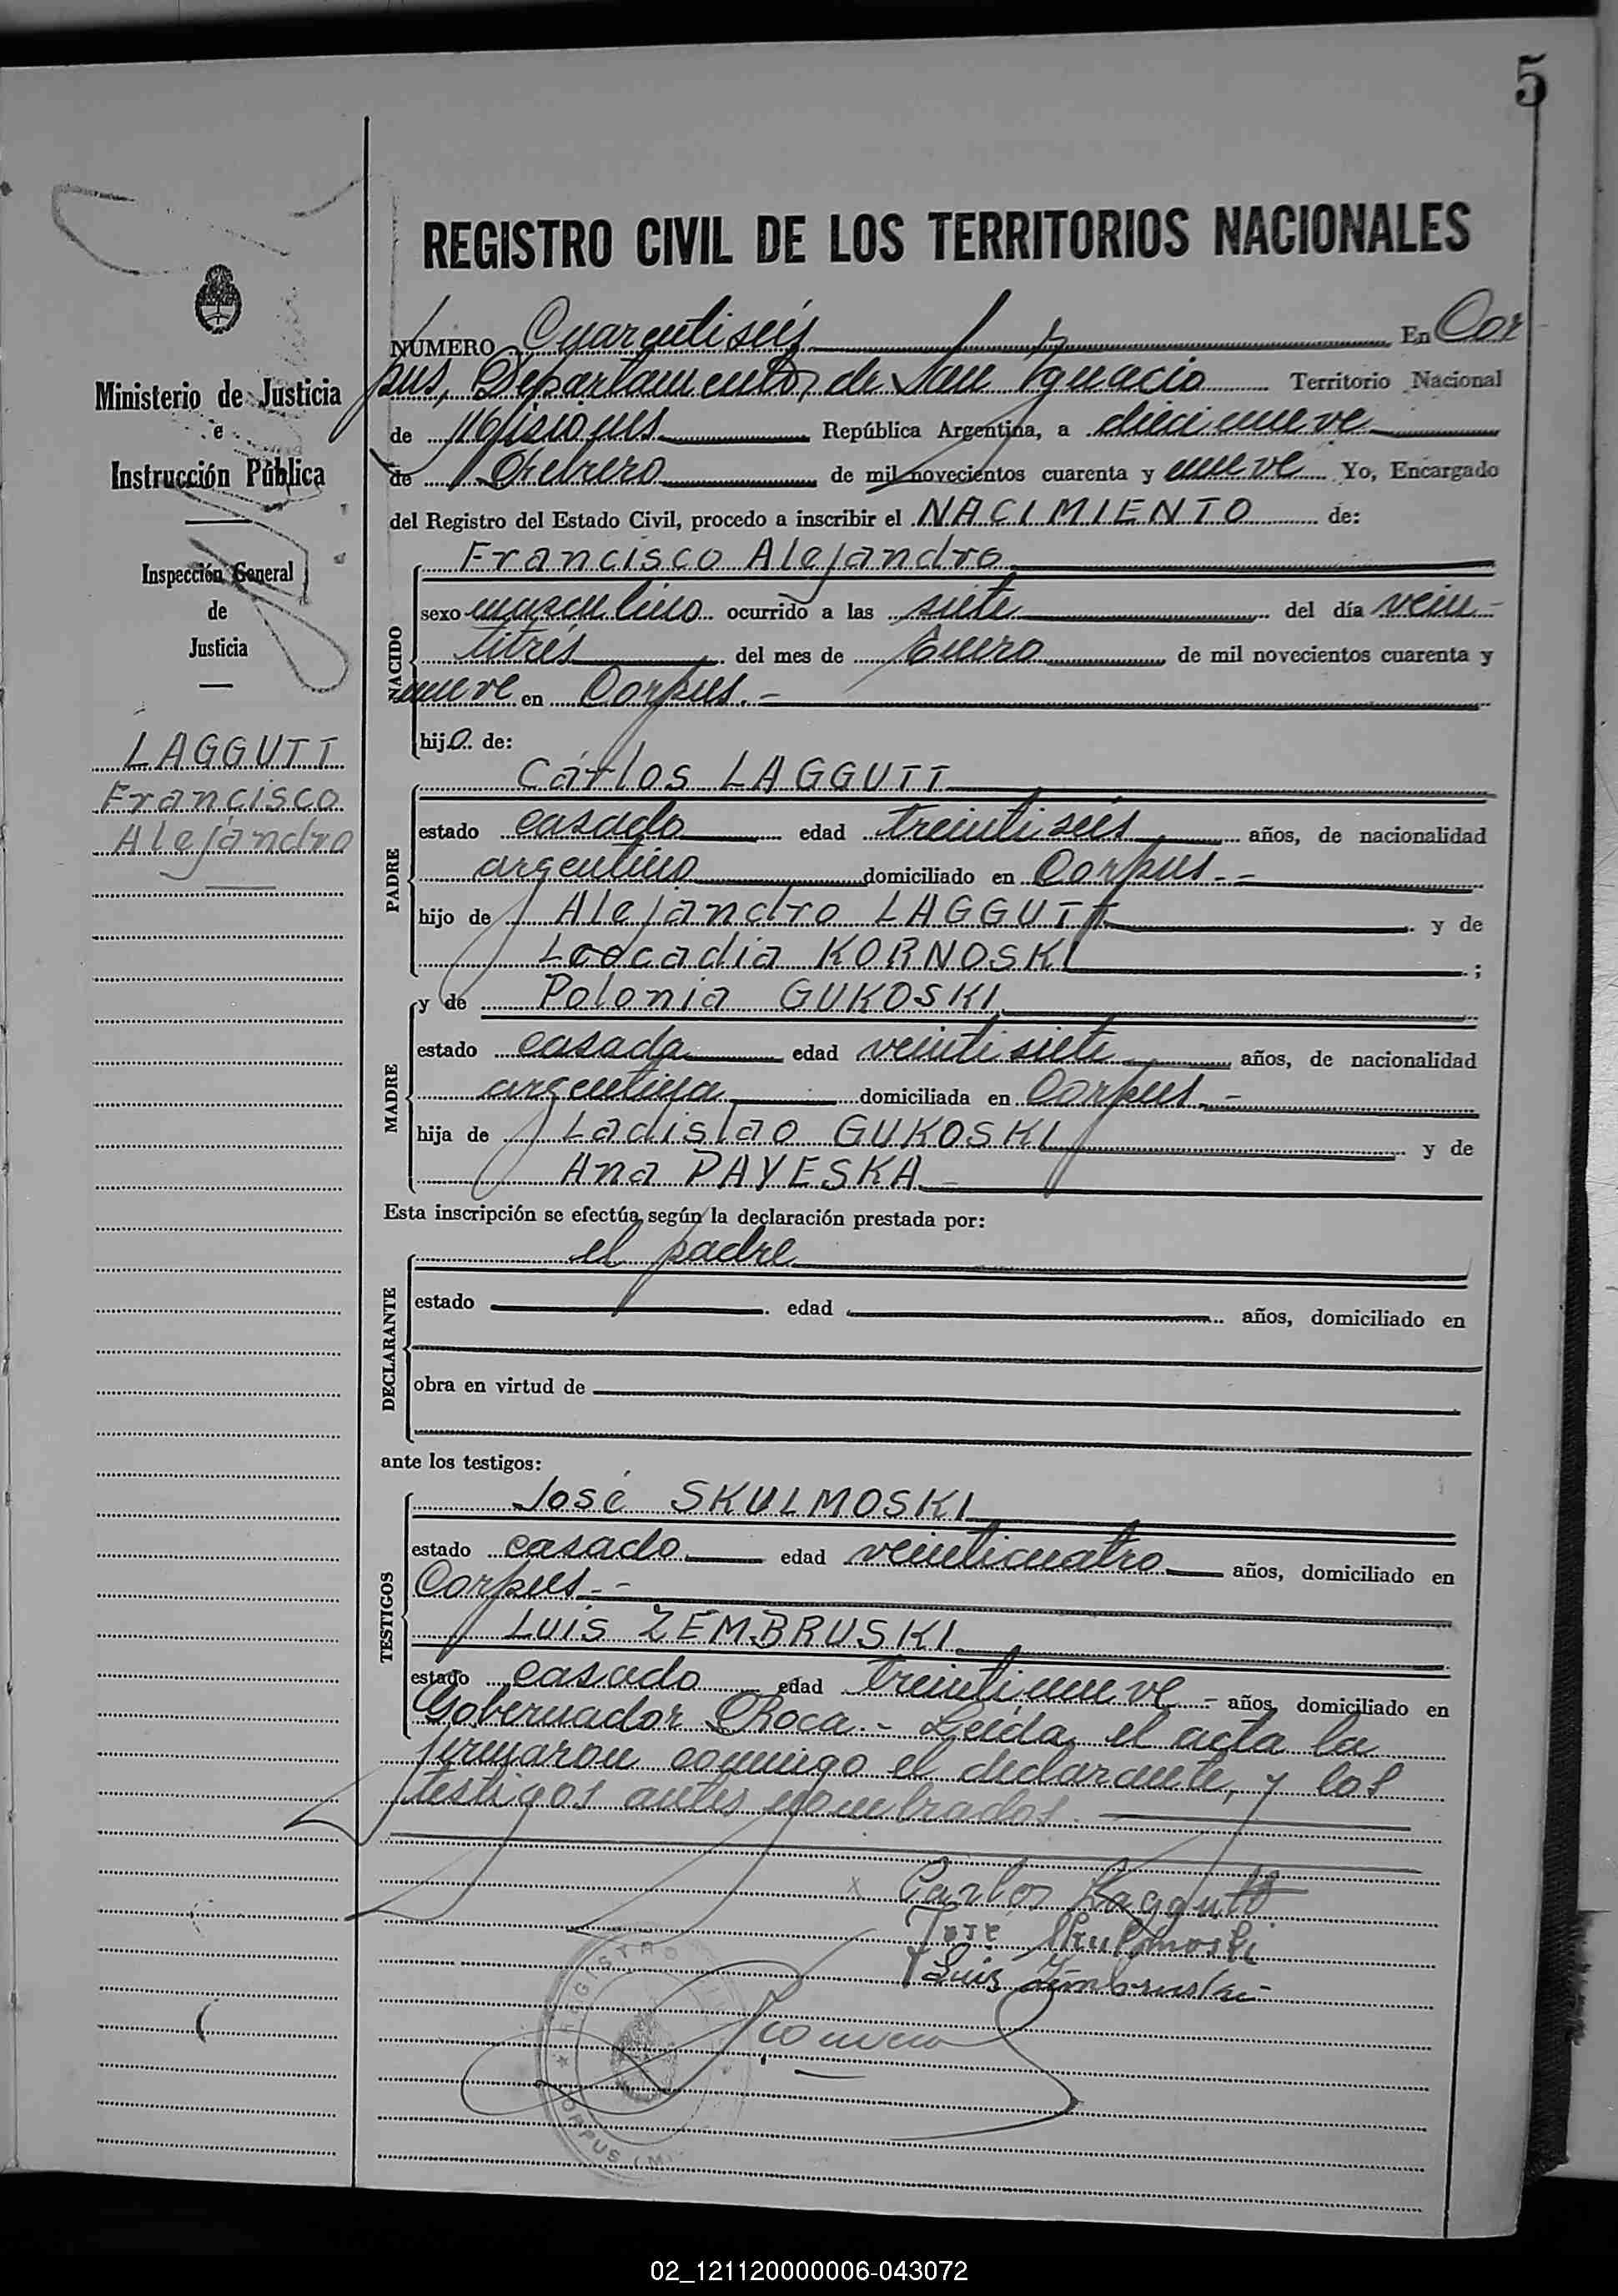 5
REGISTRO CIVIL DE LOS TERRITORIOS NACIONALES
NÚMERO Cuarentiseis En Cor
pus, Departamento de San Ignacio Territorio Nacional
de Misiones República Argentina, a diecinueve
de Febrero de mil novecientos cuarenta y nueve Yo, Encargado
del Registro del Estado Civil, procedo a inscribir el NACIMIENTO de:
Francisco Alejandro
NACIDO
sexo masculino ocurrido a las siete del día vein-
titrés del mes de Enero de mil novecientos cuarenta y
nueve en Corpus.-
hijo de:
Carlos LAGGUTT
PADRE
estado casado edad treintiseis años, de nacionalidad
argentino domiciliado en Corpus.-
hijo de Alejandro LAGGUTT y de
Leocadia KORNOSKI ;
y de Polonia GUKOSKI
MADRE
estado casada edad veintisiete años, de nacionalidad
argentina domiciliada en Corpus.-
hija de Ladislao GUKOSKI y de
Ana PAYESKA
Esta inscripción se efectúa según la declaración prestada por:
el padre
DECLARANTE
estado edad años, domiciliado en
obra en virtud de
ante los testigos:
José SKULMOSKI
TESTIGOS
estado casado edad veinticuatro años, domiciliado en
Corpus.-
Luis ZEMBRUSKI
estado casado edad treintinueve - años, domiciliado en
Gobernador Roca.- Leída el acta la
firmaron conmigo el declarante, y los
testigos antes nombrados.
Carlos Laggutt
José Skulmoski
Luis Zembruski
REGISTRO
CORPUS (M
Ministerio de Justicia
e
Instrucción Pública
Inspección General
de
Justicia
LAGGUTT
Francisco
Alejandro
02_121120000006-043072